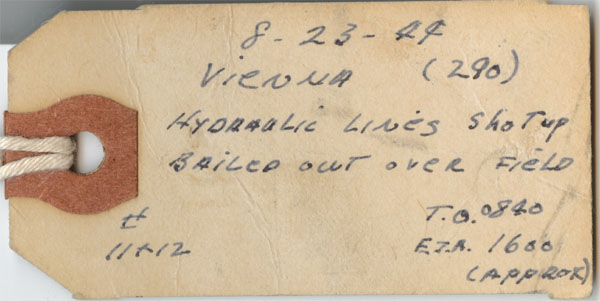 8-23-44
Vienna (290)
Hydraulic Lines Shot up
Bailed out over Field
# T.O. 0840
11+12 E.T.A. 1600
(Approx)